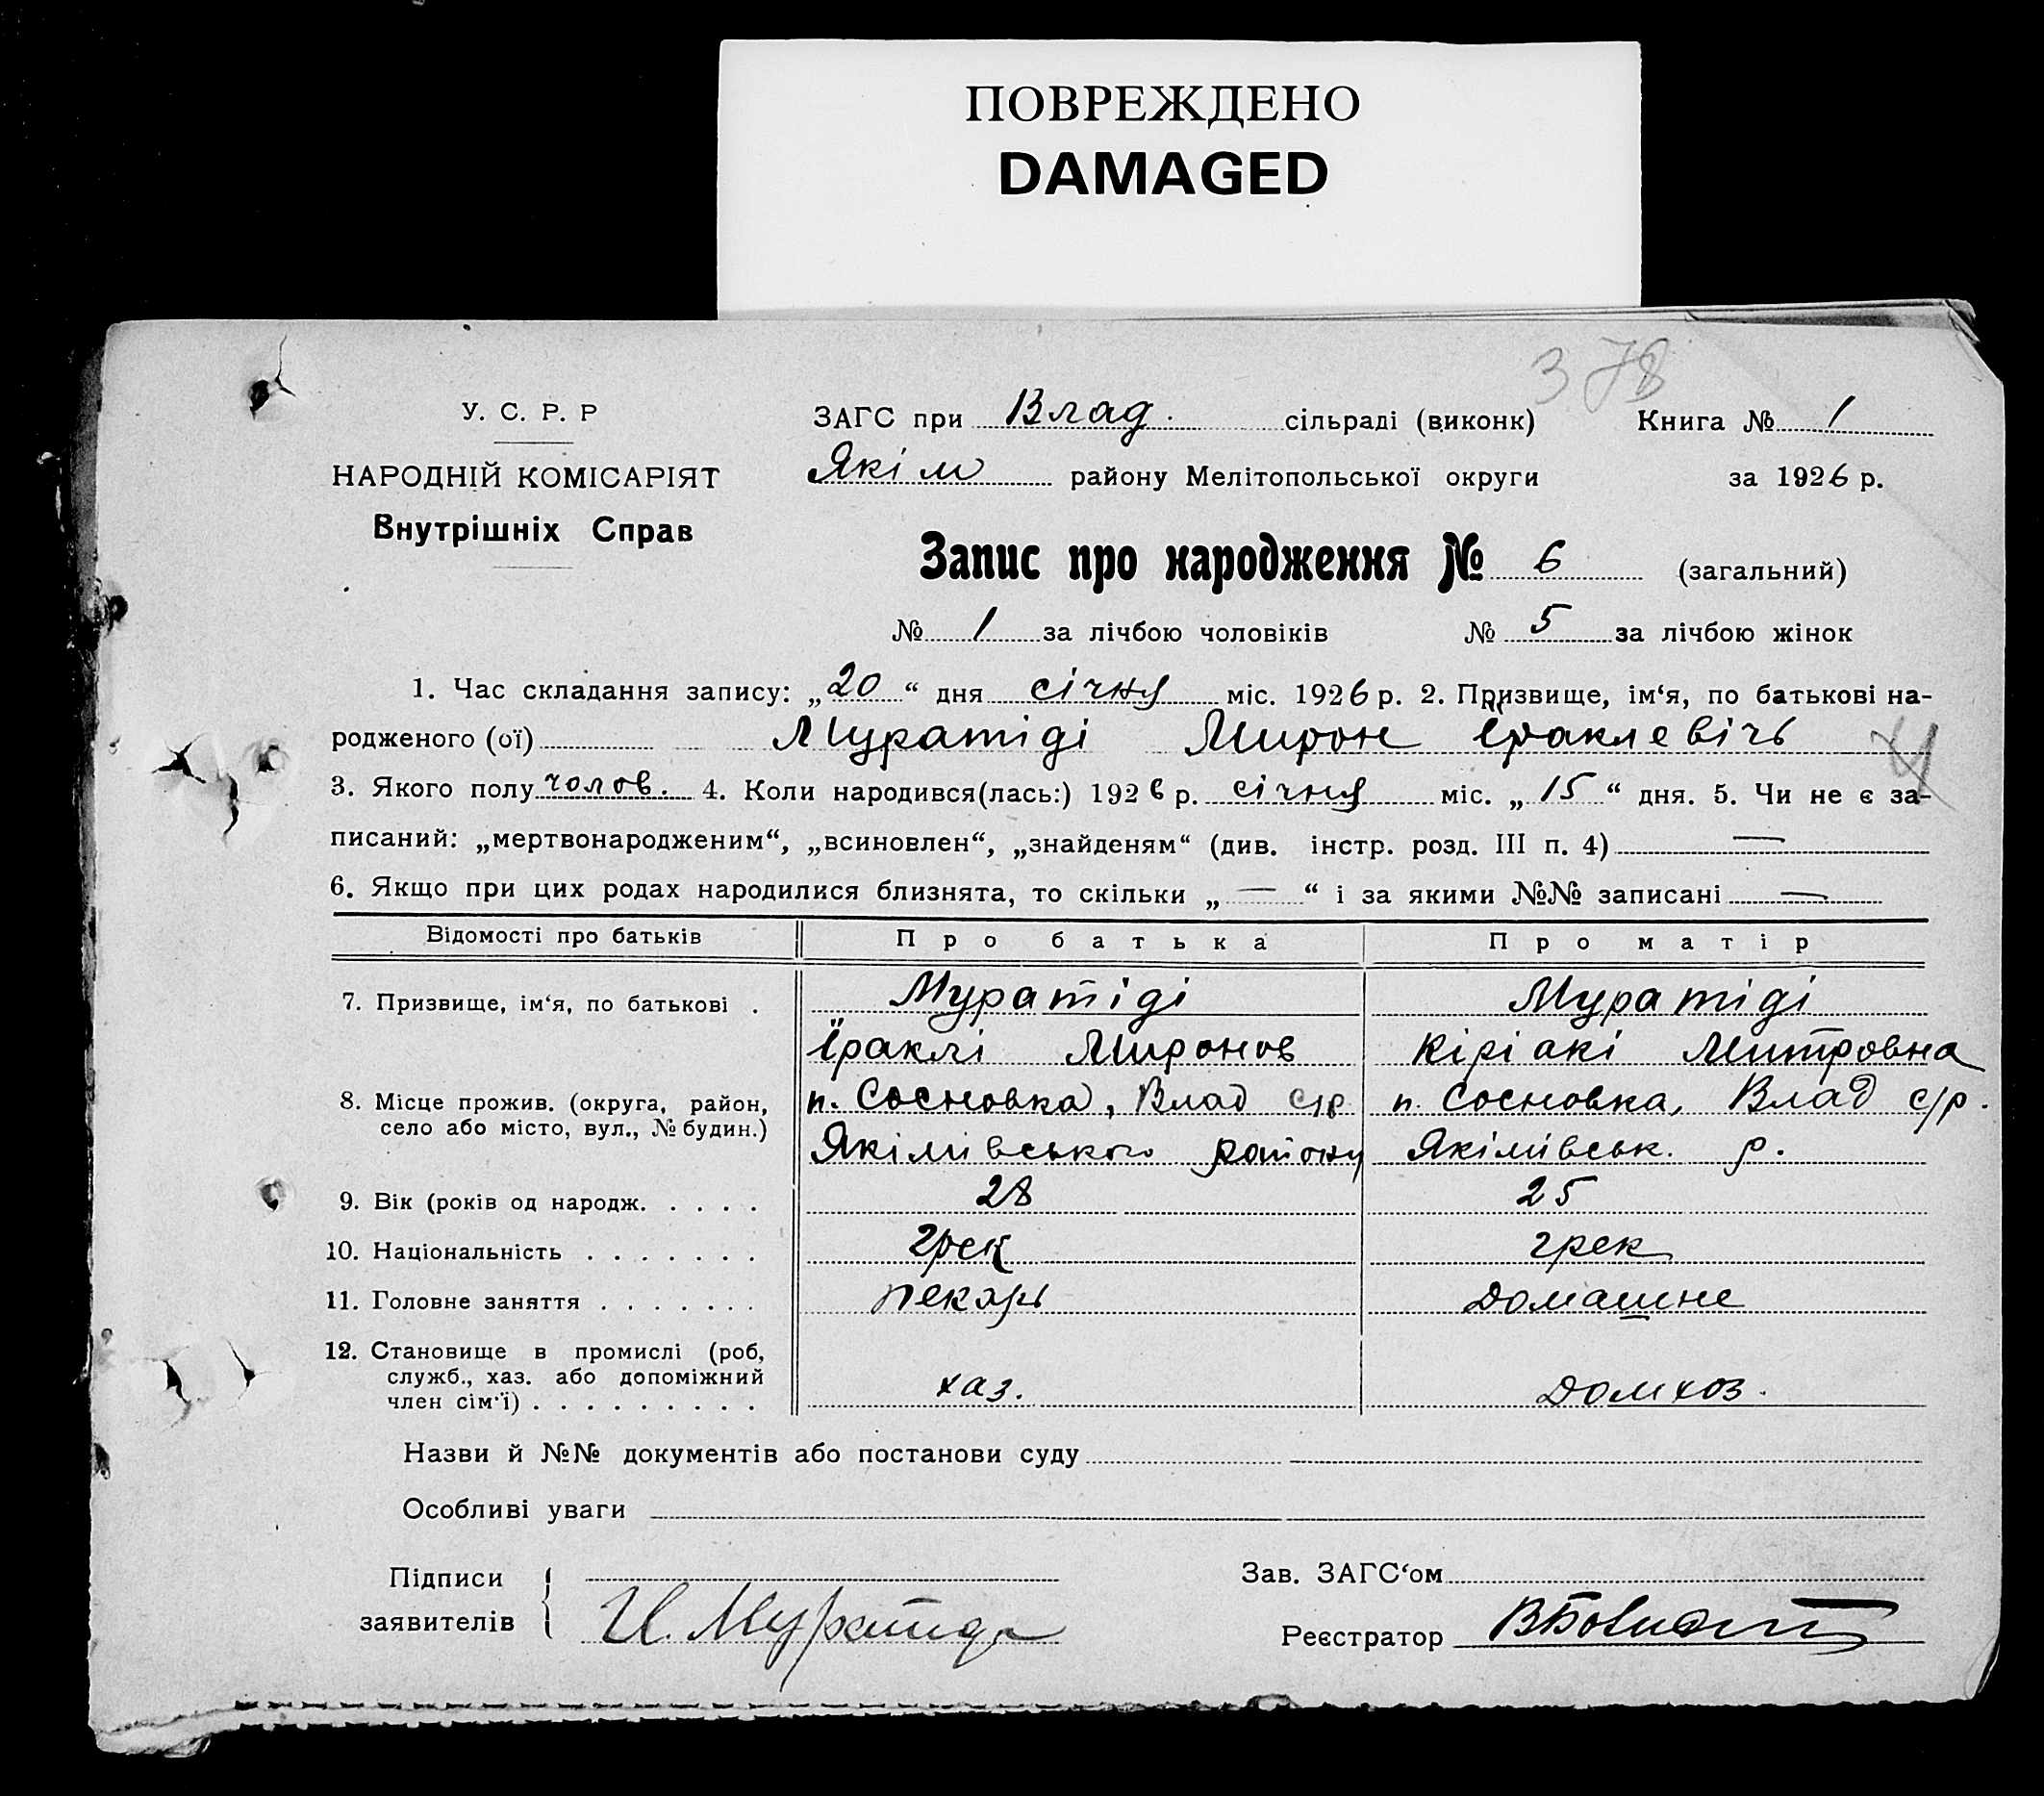 ПОВРЕЖДЕНО
DAMAGED
378
У. С. Р. Р
НАРОДНІЙ КОМІСАРІЯТ
Внутрішніх Справ
ЗАГС при Влад. сільраді (виконк) Книга № 1
Якім району Мелітопольської округи за 1926 р.
Запис про народження № 6 (загальний)
№ 1 за лічбою чоловіків № 5 за лічбою жінок
1. Час складання запису: „20“ дня січня міс. 1926 р. 2. Призвище, ім‘я, по батькові на-
родженого (ої) Муратіді Мирон Іраклевічь
3. Якого полу чолов. 4. Коли народився(лась:) 1926 р. січня міс. „15“ дня. 5. Чи не є за-
писаний: „мертвонародженим“, „всиновлен“, „знайденям“ (див. інстр. розд. III п. 4) —
6. Якщо при цих родах народилися близнята, то скільки „—“ і за якими №№ записані —
Відомості про батьків Про батька Про матір
7. Призвище, ім‘я, по батькові . Муратіді Муратіді
Іраклі Миронов Кіріакі Митровна
8. Місце прожив. (округа, район, село або місто, вул., № будин.) п. Сосновка, Влад с/р п. Сосновка, Влад с/р.
Якімівського району Якімівськ. р.
9. Вік (років од народж. . . . . 28 25
10. Національність . . . . . . . грек грек
11. Головне заняття . . . . . . . пекарь домашне
12. Становище в промислі (роб,
служб., хаз. або допоміжний
член сім‘ї) . . . . . . . . . хаз. домхоз.
Назви й №№ документів або постанови суду
Особливі уваги
Підписи
заявителів И. Муратиди
Зав. ЗАГС‘ом
Реєстратор